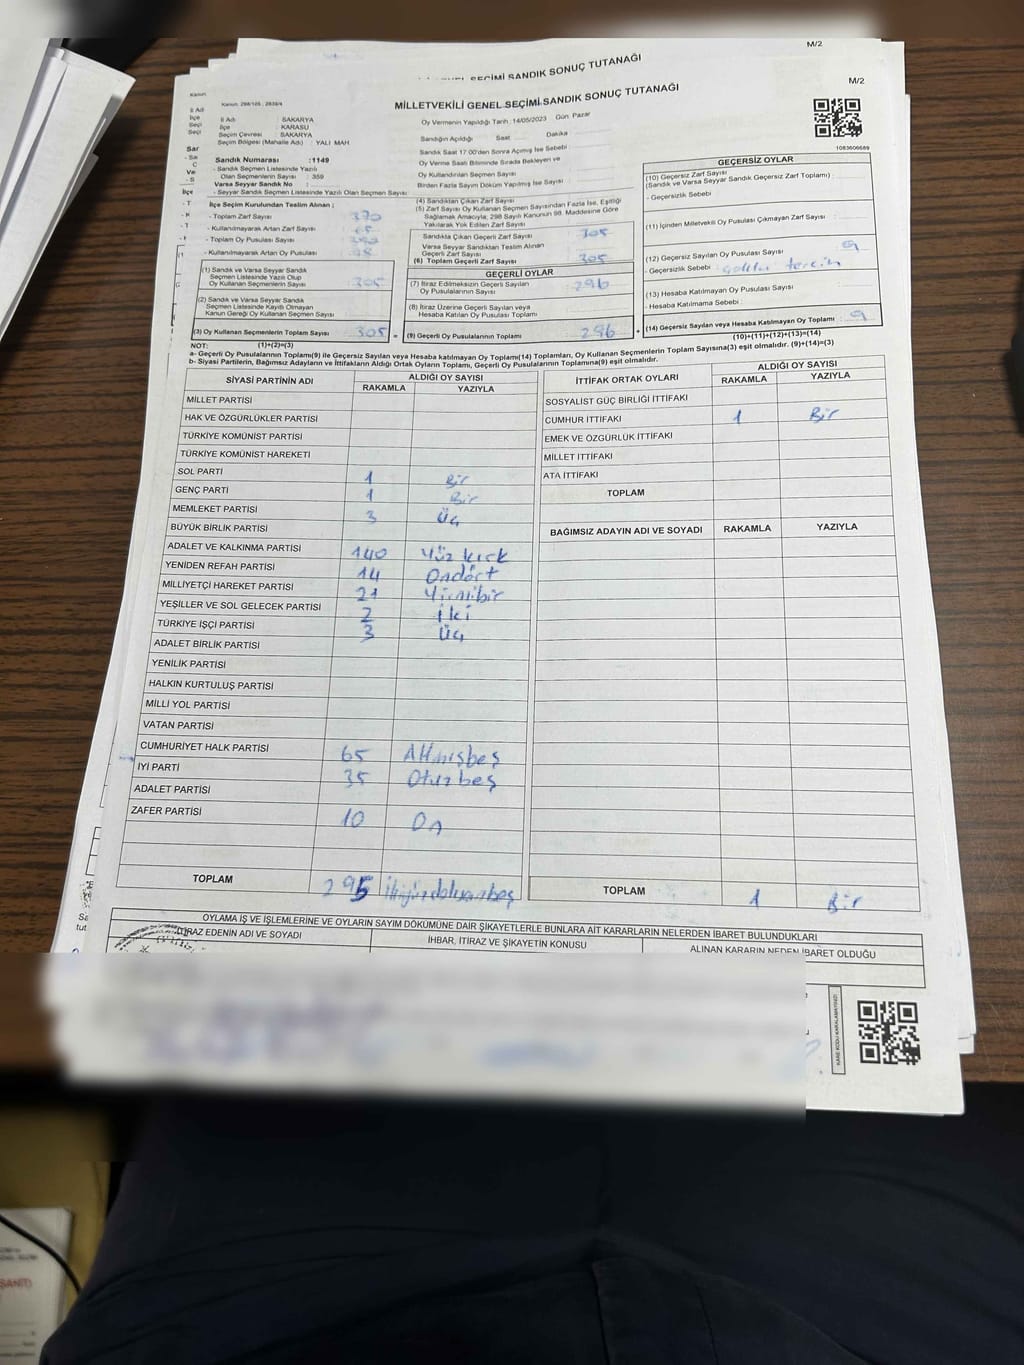 M/2
SEÇİMİ SANDIK SONUÇ TUTANAĞI
M/2
MİLLETVEKİLİ GENEL SEÇİMİ SANDIK SONUÇ TUTANAĞI
İl Adı : SAKARYA
İlçe : KARASU
Seçim Çevresi : SAKARYA
Seçim Bölgesi (Mahalle Adı) : YALI MAH
Sandık Numarası :1149
- Sandık Seçmen Listesinde Yazılı
Olan Seçmenlerin Sayısı : 359
Varsa Seyyar Sandık No :
- Seyyar Sandık Seçmen Listesinde Yazılı Olan Seçmen Sayısı
Oy Vermenin Yapıldığı Tarih :14/05/2023 Gün: Pazar
Sandığın Açıldığı Saat: Dakika :
Sandık Saat 17.00'den Sonra Açılmış İse Sebebi :
Oy Verme Saati Bitiminde Sırada Bekleyen ve
Oy Kullandırılan Seçmen Sayısı
Birden Fazla Sayım Döküm Yapılmış İse Sayısı :
1083606689
İlçe Seçim Kurulundan Teslim Alınan :
- Toplam Zarf Sayısı 370
- Kullanılmayarak Artan Zarf Sayısı
- Toplam Oy Pusulası Sayısı
- Kullanılmayarak Artan Oy Pusulası
(1) Sandık ve Varsa Seyyar Sandık
Seçmen Listesinde Yazılı Olup
Oy Kullanan Seçmen Sayısı 305
(2) Sandık ve Varsa Seyyar Sandık
Seçmen Listesinde Kayıtlı Olmayan
Kanun Gereği Oy Kullanan Seçmen Sayısı
(3) Oy Kullanan Seçmenlerin Toplam Sayısı 305
(4) Sandıktan Çıkan Zarf Sayısı
(5) Zarf Sayısı Oy Kullanan Seçmen Sayısından Fazla İse, Eşitliği
Sağlamak Amacıyla; 298 Sayılı Kanunun 98. Maddesine Göre
Yakılarak Yok Edilen Zarf Sayısı
Sandıkta Çıkan Geçerli Zarf Sayısı 305
Varsa Seyyar Sandıktan Teslim Alınan
Geçerli Zarf Sayısı
(6) Toplam Geçerli Zarf Sayısı 305
GEÇERLİ OYLAR
(7) İtiraz Edilmeksizin Geçerli Sayılan
Oy Pusulalarının Sayısı 296
(8) İtiraz Üzerine Geçerli Sayılan veya
Hesaba Katılan Oy Pusulası Toplamı
(9) Geçerli Oy Pusulalarının Toplamı 296
GEÇERSİZ OYLAR
(10) Geçersiz Zarf Sayısı
(Sandık ve Varsa Seyyar Sandık Geçersiz Zarf Toplamı) :
- Geçersizlik Sebebi
(11) İçinden Milletvekili Oy Pusulası Çıkmayan Zarf Sayısı :
(12) Geçersiz Oy Pusulası Sayısı : 9
- Geçersizlik Sebebi : tercih
(13) Hesaba Katılmayan Oy Pusulası Sayısı :
- Hesaba Katılmama Sebebi :
(14) Geçersiz Sayılan veya Hesaba Katılmayan Oy Toplamı : 9
NOT: (1)+(2)=(3) (10)+(11)+(12)+(13)=(14)
a- Geçerli Oy Pusulalarının Toplamı(9) ile Geçersiz Sayılan veya Hesaba katılmayan Oy Toplamı(14) Toplamları, Oy Kullanan Seçmenlerin Toplam Sayısına(3) eşit olmalıdır. (9)+(14)=(3)
b- Siyasi Partilerin, Bağımsız Adayların ve İttifakların Aldığı Ortak Oyların Toplamı, Geçerli Oy Pusulalarının Toplamına(9) eşit olmalıdır.
SİYASİ PARTİNİN ADI ALDIĞI OY SAYISI
RAKAMLA YAZIYLA
MİLLET PARTİSİ
HAK VE ÖZGÜRLÜKLER PARTİSİ
TÜRKİYE KOMÜNİST PARTİSİ
TÜRKİYE KOMÜNİST HAREKETİ
SOL PARTİ 1 Bir
GENÇ PARTİ 1 Bir
MEMLEKET PARTİSİ 3 Üç
BÜYÜK BİRLİK PARTİSİ
ADALET VE KALKINMA PARTİSİ 140 Yüz kırk
YENİDEN REFAH PARTİSİ 14 Ondört
MİLLİYETÇİ HAREKET PARTİSİ 21 Yirmibir
YEŞİLLER VE SOL GELECEK PARTİSİ 2 İki
TÜRKİYE İŞÇİ PARTİSİ 3 Üç
ADALET BİRLİK PARTİSİ
YENİLİK PARTİSİ
HALKIN KURTULUŞ PARTİSİ
MİLLİ YOL PARTİSİ
VATAN PARTİSİ
CUMHURİYET HALK PARTİSİ 65 Altmışbeş
İYİ PARTİ 35 Otuzbeş
ADALET PARTİSİ
ZAFER PARTİSİ 10 On
TOPLAM 295 İkiyüzdoksanbeş
İTTİFAK ORTAK OYLARI ALDIĞI OY SAYISI
RAKAMLA YAZIYLA
SOSYALİST GÜÇ BİRLİĞİ İTTİFAKI
CUMHUR İTTİFAKI 1 Bir
EMEK VE ÖZGÜRLÜK İTTİFAKI
MİLLET İTTİFAKI
ATA İTTİFAKI
TOPLAM
BAĞIMSIZ ADAYIN ADI VE SOYADI RAKAMLA YAZIYLA
TOPLAM 1 Bir
OYLAMA İŞ VE İŞLEMLERİNE VE OYLARIN SAYIM DÖKÜMÜNE DAİR ŞİKAYETLERLE BUNLARA AİT KARARLARIN NELERDEN İBARET BULUNDUKLARI
İTİRAZ EDENİN ADI VE SOYADI İHBAR, İTİRAZ VE ŞİKAYETİN KONUSU ALINAN KARARIN NEDEN İBARET OLDUĞU
KARE KODU KARALAMAYINIZ!